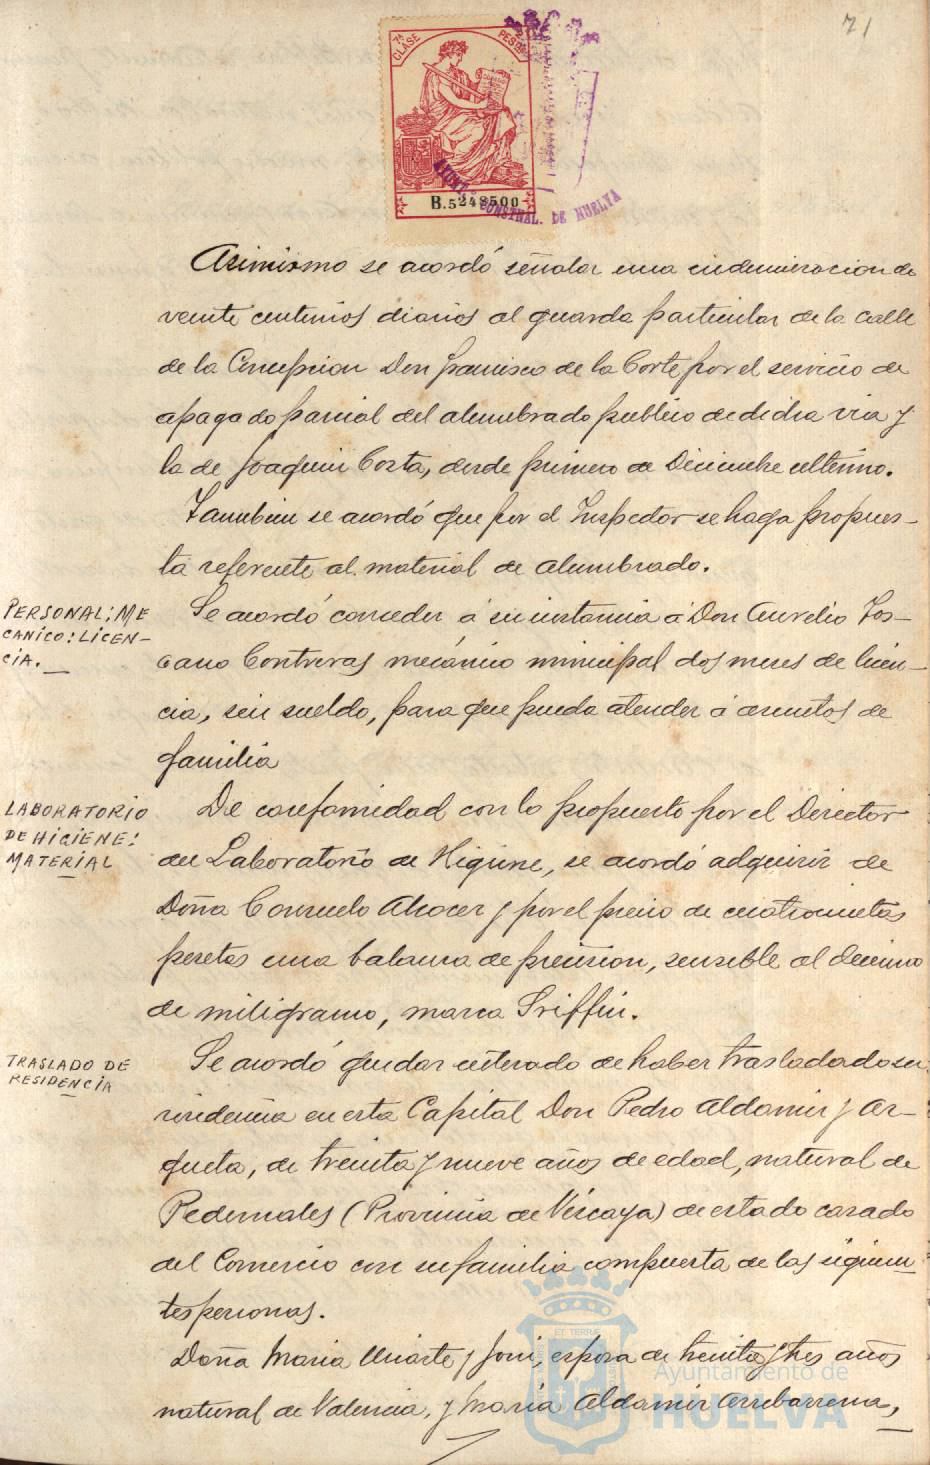 71
7ª CLASE
PESETAS
B.5248500
AYUNT. CONSTNAL. DE HUELVA
Asimismo se acordó señalar una indemnizacion de
veinte centimos diarios al guarda particular de la calle
de la Concepcion Don Francisco de la Corte por el servicio de
apagado parcial del alumbrado publico de dicha via y
la de Joaquin Costa, desde primero de Diciembre ultimo.
Tambien se acordó que por el Inspector se haga propues-
ta referente al material de alumbrado.
PERSONAL: ME
CANICO: LICEN-
CIA.
Se acordó conceder á su instancia á Don Aurelio Tos-
cano Contreras mecánico municipal dos meses de licen-
cia, sin sueldo, para que pueda atender á asuntos de
familia
LABORATORIO
DE HIGIENE:
MATERIAL
De conformidad con lo propuesto por el Director
del Laboratorio de Higiene, se acordó adquirir de
Doña Consuelo Alcocer y por el precio de cuatrocientas
pesetas una balanza de precision, sensible al decimo
de miligramo, marca Griffin.
TRASLADO DE
RESIDENCIA
Se acordó quedar enterado de haber trasladado su
residencia en esta Capital Don Pedro Aldamir y Ar-
queta, de treinta y nueve años de edad, natural de
Pedernales (Provincia de Vizcaya) de estado casado
del Comercio con su familia compuesta de las siguien-
tes personas.
Doña Maria Uriarte y , esposa de treinta y tres años
natural de Valencia, y Maria Aldamir Arrebarrena,
Ayuntamiento de
HUELVA